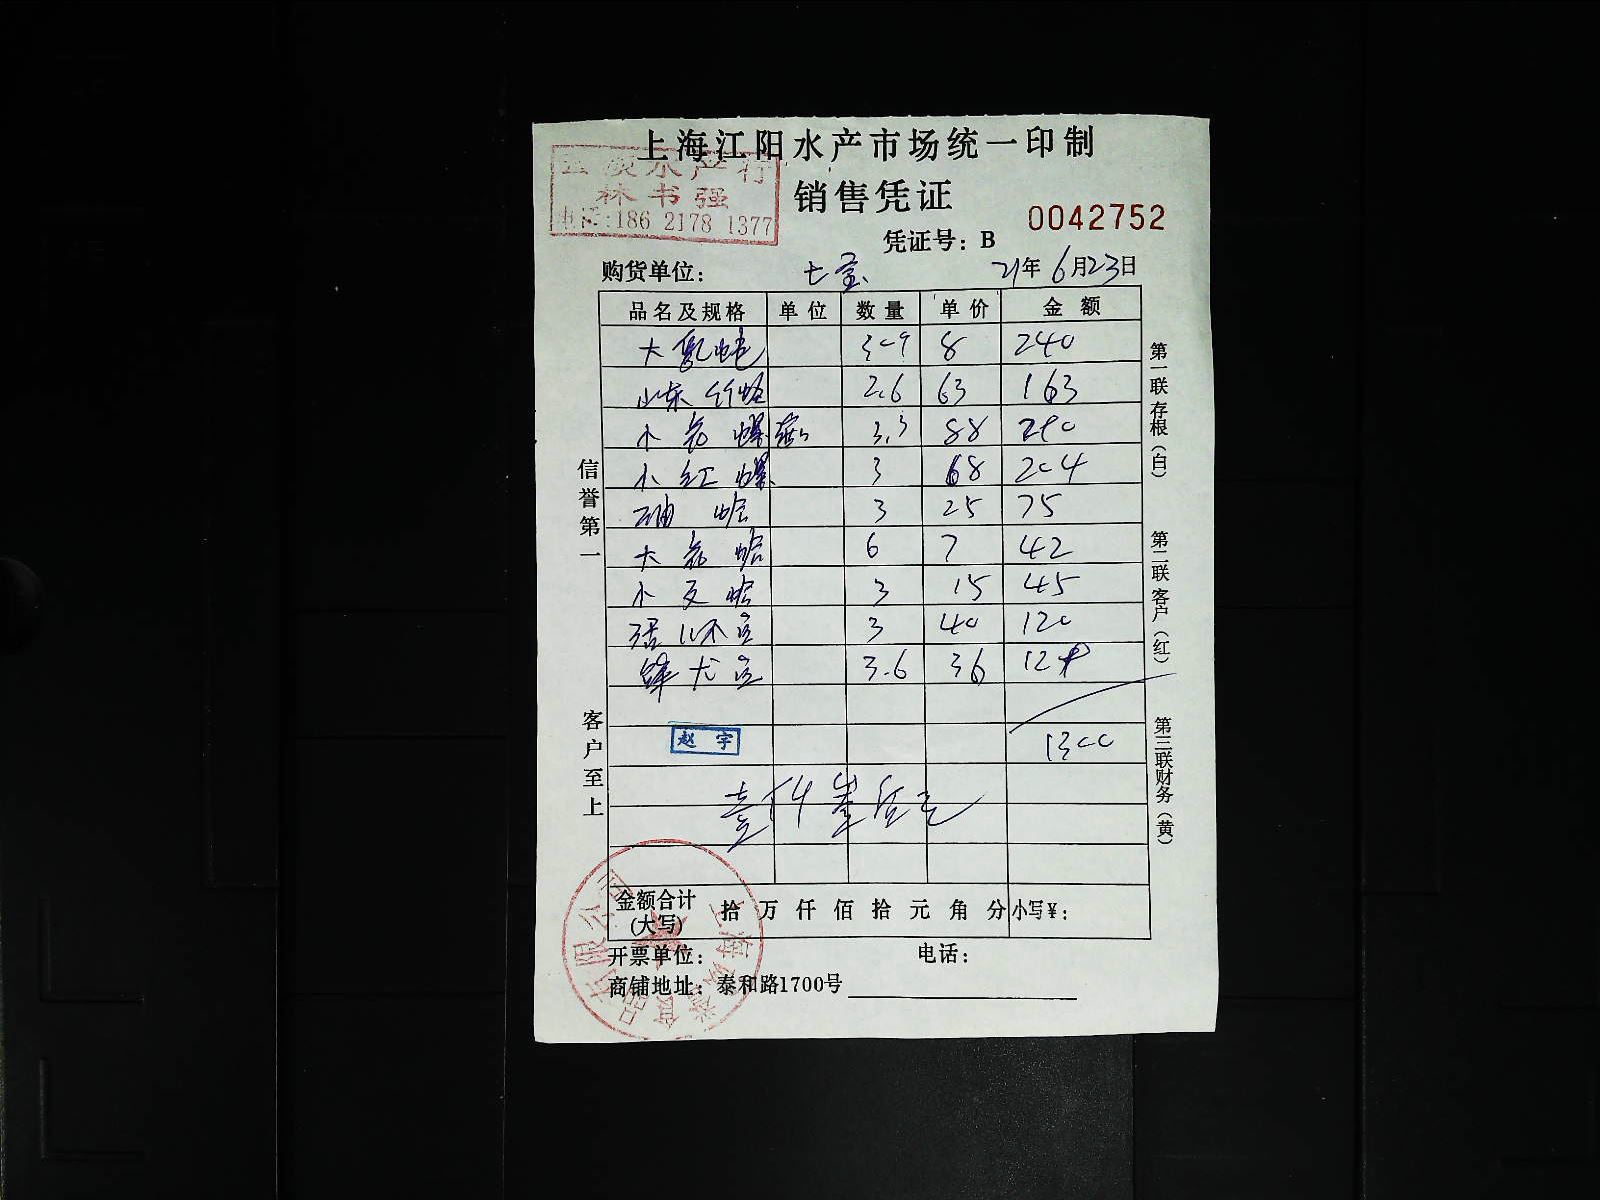 上海江阳水产市场统一印制
水产行
林书强
电话:186 2178 1377
销售凭证
0042752
凭证号：B
购货单位： 七宝 21年6月23日
品名及规格 单位 数量 单价 金额
大 8 240
山东竹蛏 2.6 63 163
小花螺 3.3 88 290
小红螺 3 68 204
油蛤 3 25 75
大花蛤 6 7 42
小文蛤 3 15 45
3 40 120
3.6 36 129
1300
赵宇
壹仟叁佰元
金额合计(大写) 拾万仟佰拾元角分 小写¥：
开票单位： 电话：
商铺地址：泰和路1700号
信誉第一
客户至上
第一联存根(白)
第二联客户(红)
第三联财务(黄)
有限公司